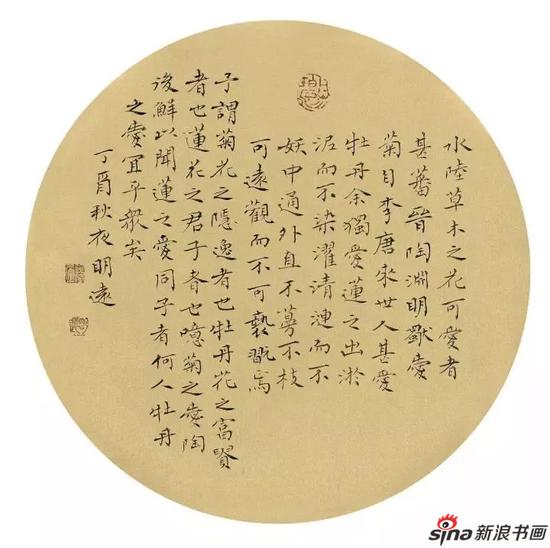 水陸草木之花可愛者
甚蕃晉陶淵明獨愛
菊自李唐來世人甚愛
牡丹余獨愛蓮之出淤
泥而不染濯清漣而不
妖中通外直不蔓不枝
可遠觀而不可褻翫焉
予謂菊花之隱逸者也牡丹花之富貴
者也蓮花之君子者也噫菊之愛陶
後鮮以聞蓮之愛同予者何人牡丹
之愛宜乎眾矣
丁酉秋夜明遠
sina新浪书画